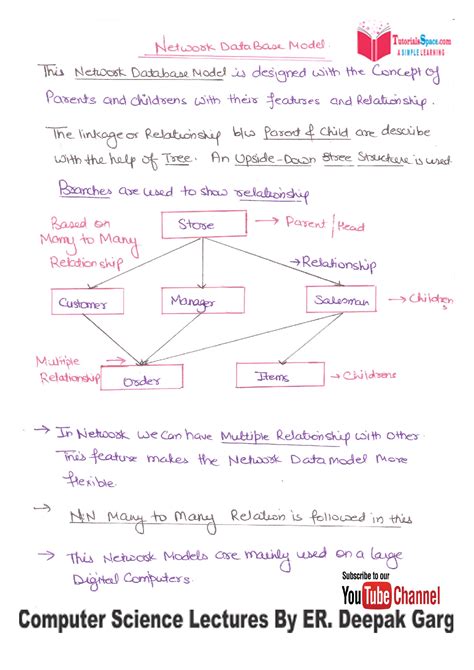 Network DataBase Model.
TutorialsSpace.com
A SIMPLE LEARNING
This Network Database Model is designed with the Concept of
Parents and childrens with their features and Relationship.
The linkage or Relationship b/w Parent & Child are describe
with the help of Tree. An Upside-Down Stree Structure is used.
Branches are used to show relationship
Based on
Many to Many
Relationship
Store
Parent / Head
Relationship
Customer
Manager
Salesman
Childrens
Multiple
Relationship
Order
Items
Childrens
→ In Network we can have Multiple Relationship with other.
This feature makes the Network Data model More
flexible.
→ N:N Many to Many Relation is followed in this
→ This Network Models are mainly used on a large
Digital Computers.
Subscribe to our
YouTube Channel
Computer Science Lectures By ER. Deepak Garg